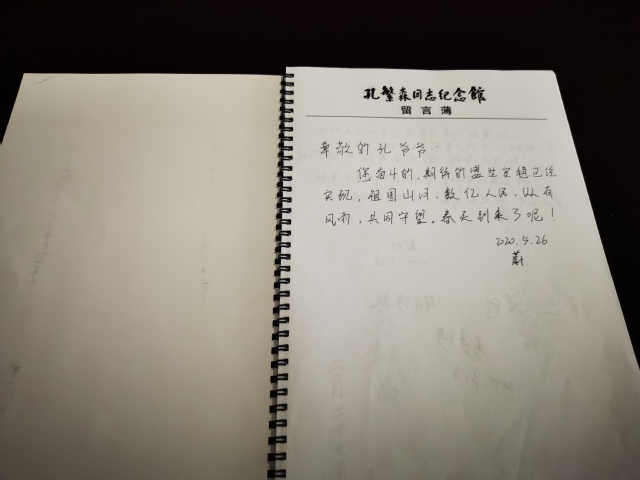 孔繁森同志纪念館
留言薄
尊敬的孔爷爷：
您奋斗的、期待的盛世宏愿已经
实现，祖国山河、数亿人民，纵有
风雨，共同守望，春天到来了呢！
2020.5.26